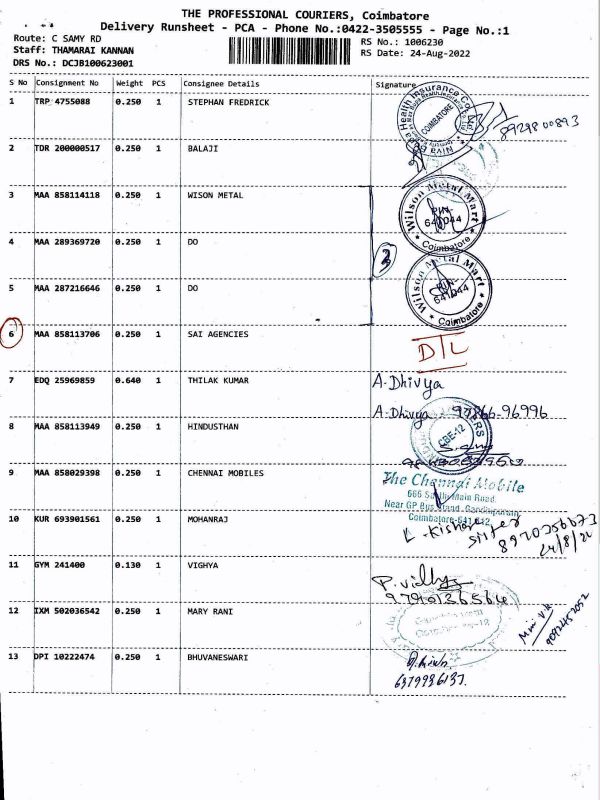 THE PROFESSIONAL COURIERS, Coimbatore
Delivery Runsheet - PCA - Phone No.:0422-3505555 - Page No.:1
Route: C SAMY RD
RS No.: 1006230
Staff: THAMARAI KANNAN
RS Date: 24-Aug-2022
DRS No.: DCJB100623001
S No Consignment No Weight PCS Consignee Details Signature
1 TRP 4755088 0.250 1 STEPHAN FREDRICK
Health Insurance Co.
COIMBATORE
8929800893
2 TDR 200000517 0.250 1 BALAJI
3 MAA 858114118 0.250 1 WISON METAL
Wilson Metal Mart
PIN-
641 044
Coimbatore
4 MAA 289369720 0.250 1 DO
3
5 MAA 287216646 0.250 1 DO
Wilson Metal Mart
PIN-
641 044
Coimbatore
6 MAA 858113706 0.250 1 SAI AGENCIES
D/L
7 EDQ 25969859 0.640 1 THILAK KUMAR A.Dhivya
A.Dhivya 97866-96996
8 MAA 858113949 0.250 1 HINDUSTHAN
CBE-12
9 MAA 858029398 0.250 1 CHENNAI MOBILES
The Chennai Mobile
666 Main Road
Near GP Bus Stand, Gandhipuram
Coimbatore-641 012
10 KUR 693901561 0.250 1 MOHANRAJ
L. Kishore
sister
8920256673
24/8/22
11 GYM 241400 0.130 1 VIGHYA
P. vidhya
9790136564
12 IXM 502036542 0.250 1 MARY RANI
9092452052
13 DPI 10222474 0.250 1 BHUVANESWARI
6379936137